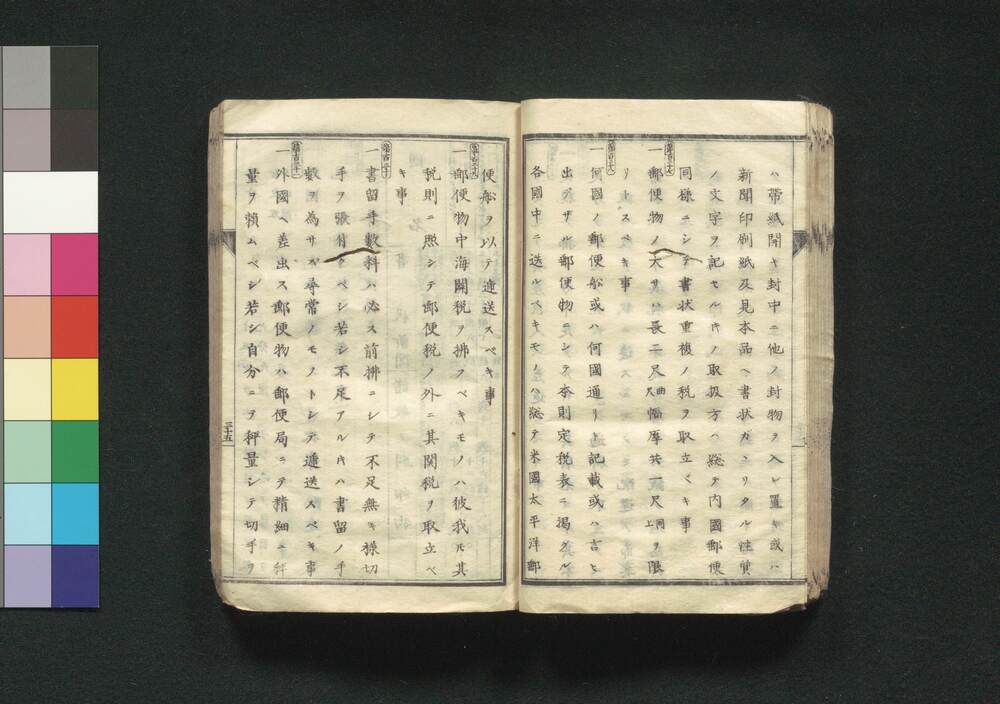 ハ帯紙開キ封中ニ他ノ封物ヲ入レ置キ或ハ
新聞印刷紙及見本品ヘ書状カヽリタル性質
ノ文字ヲ記セル𪜈ノ取扱方ハ総テ内國郵便
同様ニシテ書状重複ノ税ヲ取立ベキ事
第百二十七
一郵便物ノ大サハ長二尺曲尺幅厚共一尺同上ヲ限
リトスベキ事
第百二十八
一何國ノ郵便舩或ハ何國通リト記載或ハ言ヒ
出ザル郵便物ニシテ本則定税表ニ掲グル
各國中ニ送ルベキモノハ総テ米國太平洋郵
便舩ヲ以テ逓送スベキ事
第百二十九
一郵便物中海關税ヲ拂フベキモノハ彼我𪜈其
税則ニ照シテ郵便税ノ外ニ其関税ヲ取立ベ
キ事
第百三十
一書留手數料ハ必ス前拂ニシテ不足無キ様切
手ヲ張付クベシ若シ不足アル𪜈ハ書留ノ手
數ヲ為サズ尋常ノモノトシテ逓送スベキ事
第百三十一
一外國ヘ差出ス郵便物ハ郵便局ニテ精細ニ秤
量ヲ頼ムベシ若シ自分ニテ秤量シテ切手ヲ
三十五